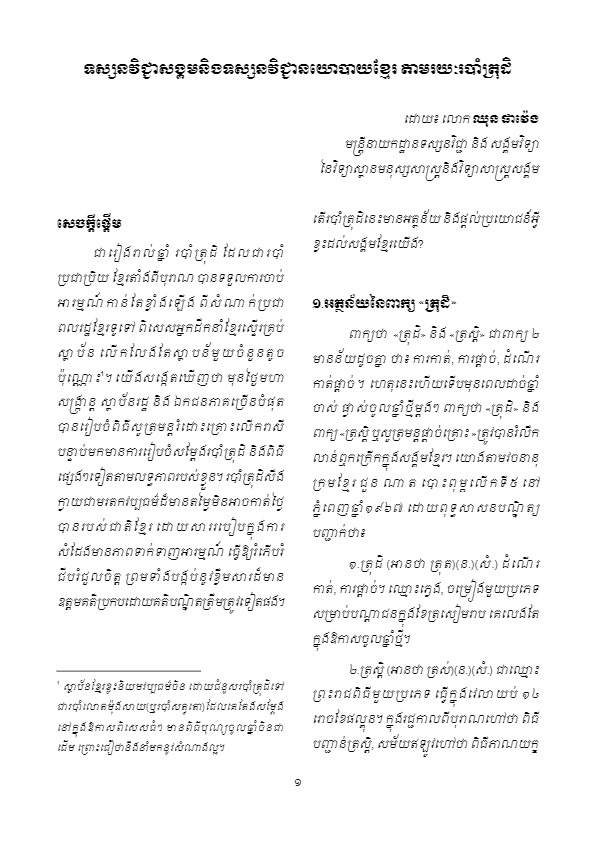 ទស្សនវិជ្ជាសង្គមនិងទស្សនវិជ្ជានយោបាយខ្មែរ តាមរយៈរបាំត្រុដិ
ដោយ៖ លោក ឈុន ផាវ៉េង
មន្ត្រីនាយកដ្ឋានទស្សនវិជ្ជា និង សង្គមវិទ្យា
នៃវិទ្យាស្ថានមនុស្សសាស្ត្រនិងវិទ្យាសាស្ត្រសង្គម
សេចក្ដីផ្ដើម
ជារៀងរាល់ឆ្នាំ របាំត្រុដិ ដែលជារបាំ
ប្រជាប្រិយ ខ្មែរតាំងពីបុរាណ បានទទួលការចាប់
អារម្មណ៍ កាន់តែខ្លាំងឡើង ពីសំណាក់ប្រជា
ពលរដ្ឋខ្មែរទូទៅ ពិសេសអ្នកដឹកនាំខ្មែរស្ទើរគ្រប់
ស្ថាប័ន លើកលែងតែស្ថាប័នមួយចំនួនតូច
ប៉ុណ្ណោះ¹។ យើងសង្កេតឃើញថា មុនថ្ងៃមហា
សង្ក្រាន្ត ស្ថាប័នរដ្ឋ និង ឯកជនភាគច្រើនបំផុត
បានរៀបចំពិធីសូត្រមន្តរំដោះគ្រោះលើករាសី
បន្ទាប់មកមានការរៀបចំសម្ដែងរបាំត្រុដិ និងពិធី
ផ្សេងៗទៀតតាមលទ្ធភាពរបស់ខ្លួន។ របាំត្រុដិសឹង
ក្លាយជាមរតកវប្បធម៌ដ៏មានតម្លៃមិនអាចកាត់ថ្លៃ
បានរបស់ជាតិខ្មែរ ដោយសាររបៀបក្នុងការ
សំដែងមានភាពទាក់ទាញអារម្មណ៍ ធ្វើឱ្យរំភើបរំ
ជើបរំជួលចិត្ត ព្រមទាំងបង្កប់នូវខ្លឹមសារដ៏មាន
ឧត្តមគតិប្រកបដោយគតិបណ្ឌិតត្រឹមត្រូវទៀតផង។
¹ ស្ថាប័នខ្មែរខ្លះនិយមវប្បធម៌ចិន ដោយជំនួសរបាំត្រុដិទៅ
ជារបាំលោតម៉ុងសាយ(ឬរបាំសត្វតោ)ដែលគេតែងសម្ដែង
នៅក្នុងឱកាសពិសេសធំៗ មានពិធីបុណ្យចូលឆ្នាំចិនជា
ដើម ព្រោះជឿថានឹងនាំមកនូវសំណាងល្អ។
តើរបាំត្រុដិនេះមានអត្ថន័យ និងផ្ដល់ប្រយោជន៍អ្វី
ខ្លះដល់សង្គមខ្មែរយើង?
១.អត្ថន័យនៃពាក្យ «ត្រុដិ»
ពាក្យថា «ត្រុដិ» និង «ត្រស្តិ» ជាពាក្យ ២
មានន័យដូចគ្នា ថា៖ ការកាត់, ការផ្ដាច់, ដំណើរ
កាត់ផ្ដាច់ ។ ហេតុនេះហើយទើបមុនពេលដាច់ឆ្នាំ
ចាស់ ផ្លាស់ចូលឆ្នាំថ្មីម្ដងៗ ពាក្យថា «ត្រុដិ» និង
ពាក្យ «ត្រស្តិ ឬសូត្រមន្តផ្ដាច់គ្រោះ» ត្រូវបានរំលឹក
លាន់ឮកក្រើកក្នុងសង្គមខ្មែរ។ យោងតាមវចនានុ
ក្រមខ្មែរ ជួន ណាត បោះពុម្ពលើកទី៥ នៅ
ភ្នំពេញឆ្នាំ១៩៦៧ ដោយពុទ្ធសាសនបណ្ឌិត្យ
បញ្ជាក់ថា៖
១.ត្រុដិ (អានថា ត្រុត)(ន.)(សំ.) ដំណើរ
កាត់, ការផ្ដាច់។ ឈ្មោះភ្លេង, ចម្រៀងមួយប្រភេទ
សម្រាប់បណ្ដាជនក្នុងខែត្រសៀមរាប គេលេងតែ
ក្នុងឱកាសចូលឆ្នាំថ្មី។
២.ត្រស្តិ (អានថា ត្រស់)(ន.)(សំ.) ជាឈ្មោះ
ព្រះរាជពិធីមួយប្រភេទ ធ្វើក្នុងវេលាយប់ ១៤
រោចខែផល្គុន។ ក្នុងរជ្ជកាលពីបុរាណហៅថា ពិធី
បញ្ជាន់ត្រស្តិ, សម័យឥឡូវហៅថា ពិធីភាណយក្ខ
១